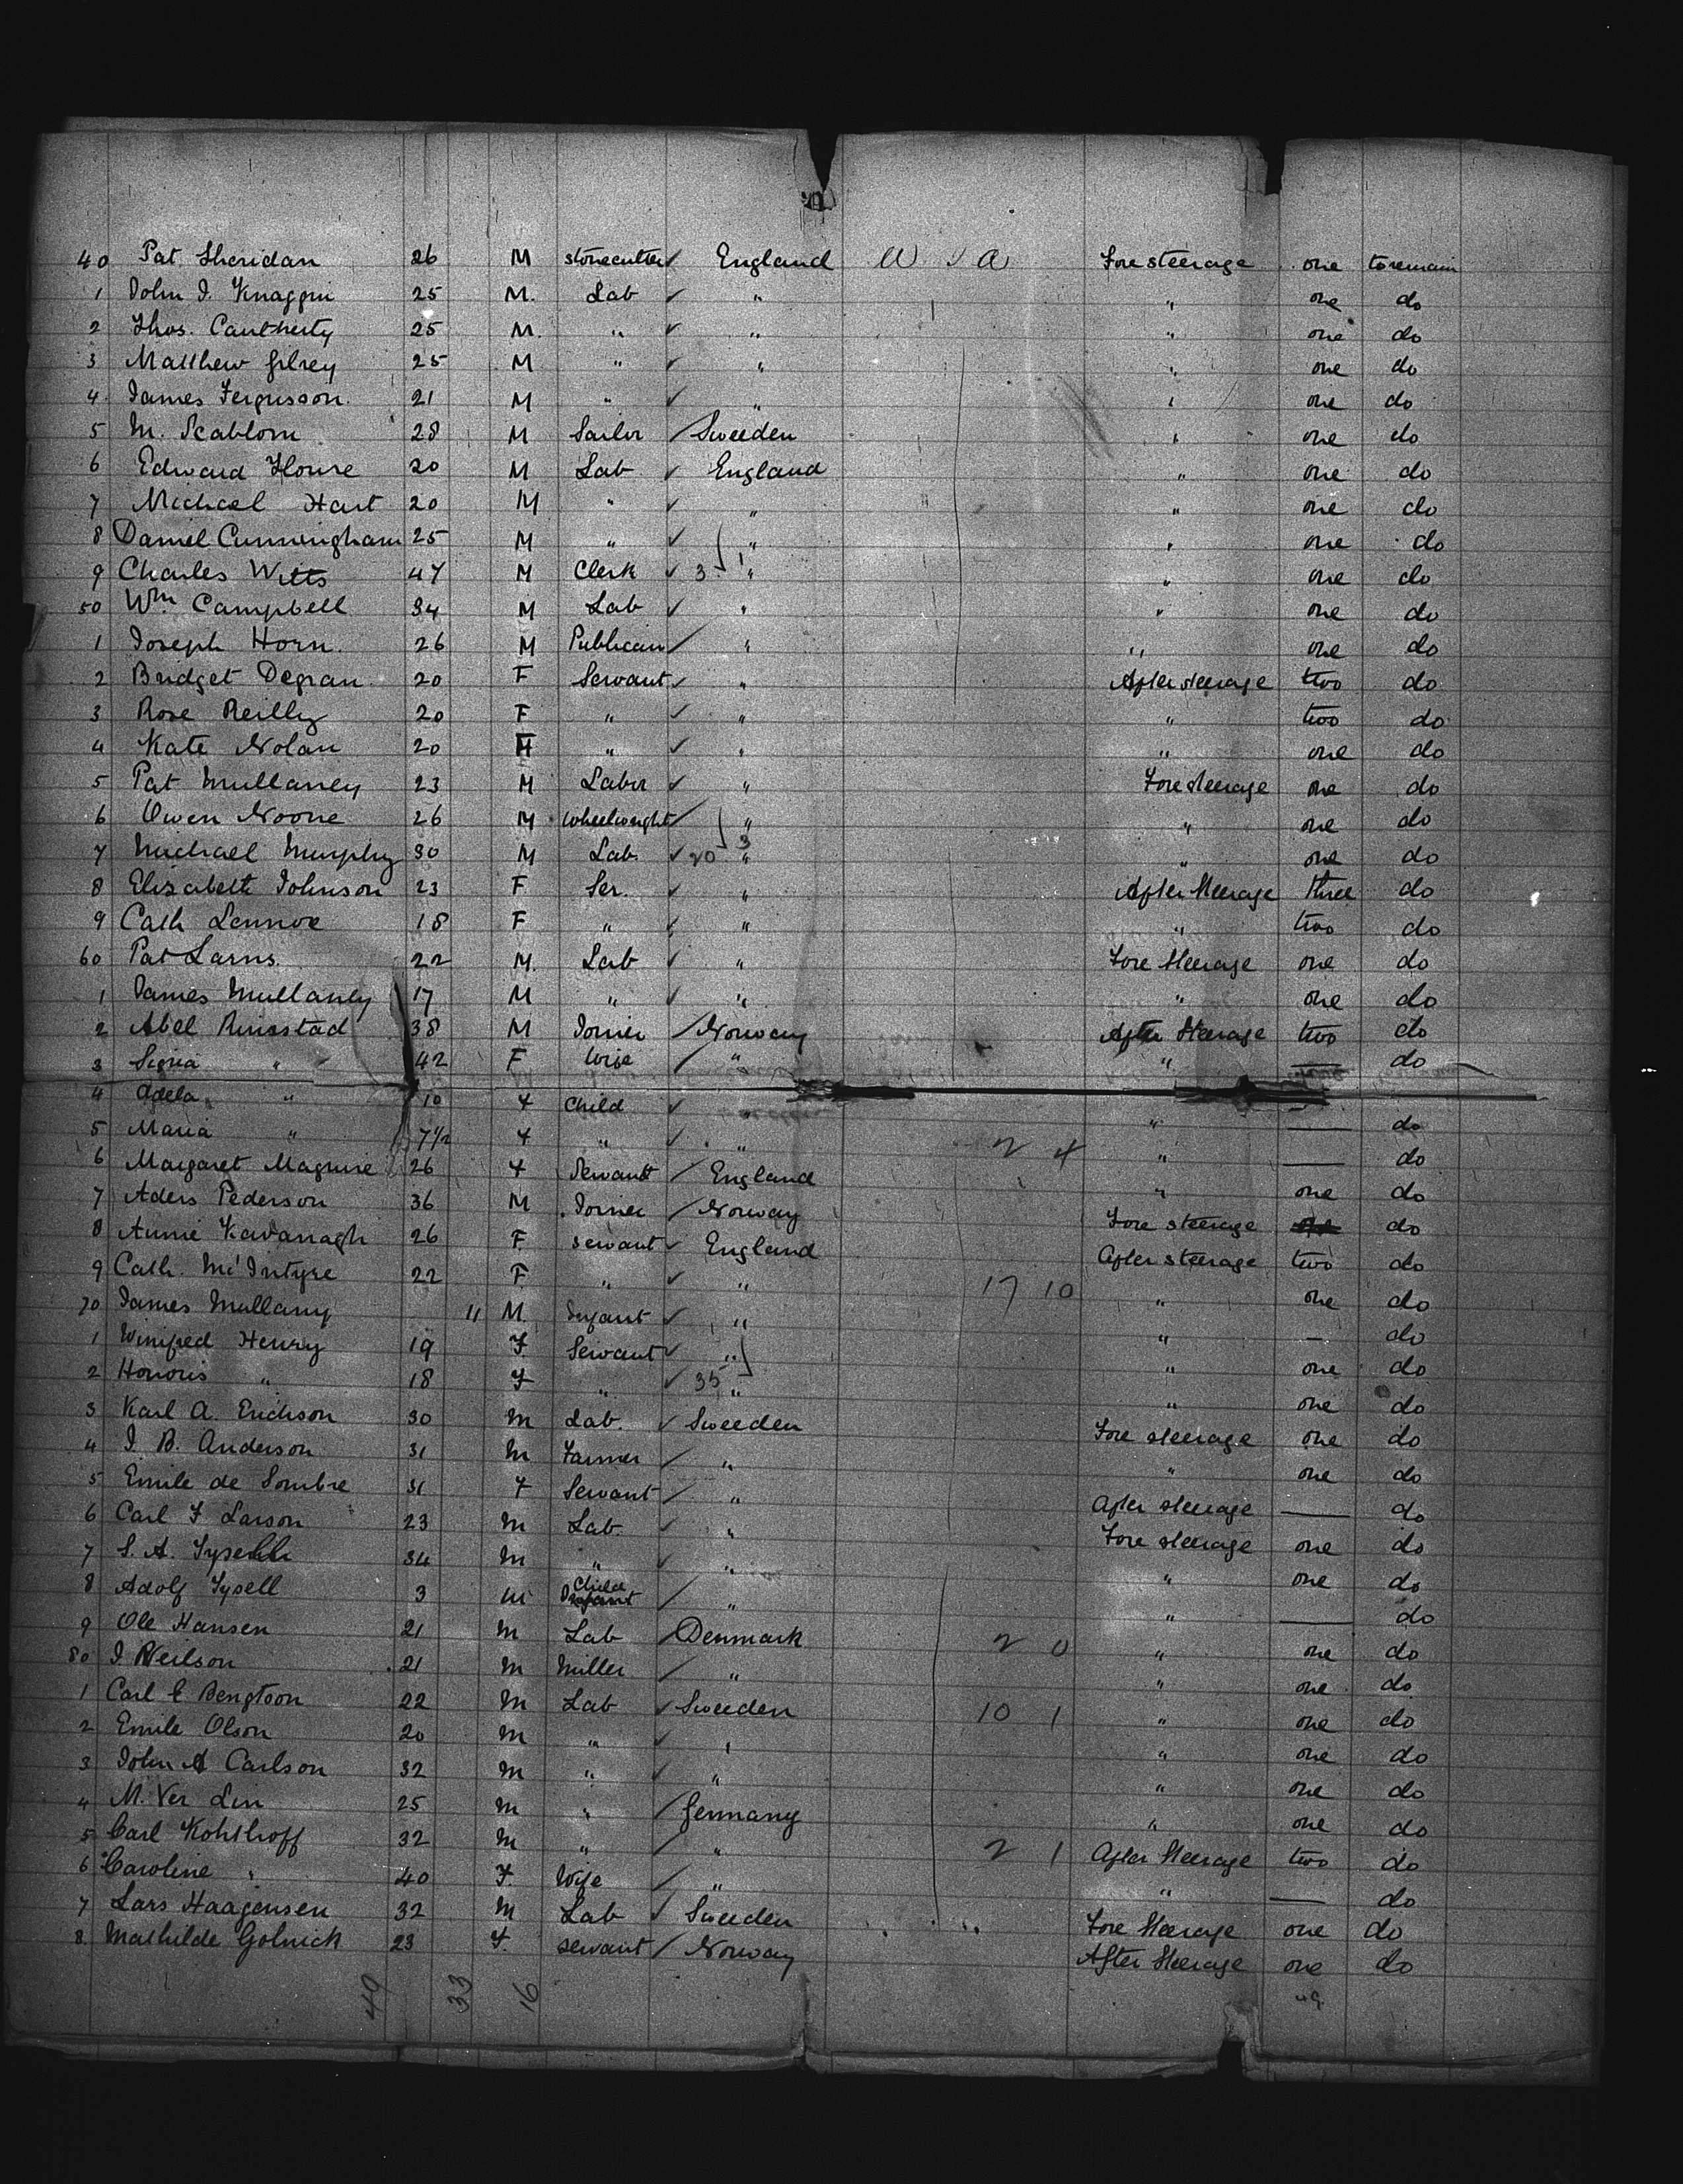 40 Pat Sheridan 26 M stonecutter ✓ England U S A Fore steerage one to remain
1 John J. 25 M. Lab ✓ " " one do
2 Thos. 25 M. " ✓ " " one do
3 Matthew 25 M " ✓ " " one do
4 James Fergusson 21 M " ✓ " " one do
5 M. 28 M Sailor / Sweeden " one do
6 Edward 20 M Lab ✓ England " one do
7 Michael Hart 20 M " ✓ " " one do
8 Daniel Cunningham 25 M " ✓ " " one do
9 Charles Witts 47 M Clerk ✓ 3 1 " " one do
50 Wm Campbell 34 M Lab ✓ " " one do
1 Joseph Horn 26 M Publican / " " one do
2 Bridget Degnan 20 F Servant ✓ " After steerage two do
3 Rose Reilly 20 F " ✓ " " two do
4 Kate Nolan 20 F " ✓ " " one do
5 Pat Mullaney 23 M Labor ✓ " Fore steerage one do
6 Owen Noone 26 M wheelwright ✓ " " one do
7 Michael Murphy 30 M Lab. ✓ 20 3 " " one do
8 Elizabeth Johnson 23 F Ser. ✓ " After Steerage three do
9 Cath Lennoe 18 F " ✓ " " two do
60 Pat Larns 22 M. Lab ✓ " Fore Steerage one do
1 James Mullaney 17 M " ✓ " " one do
2 Abel 38 M Joiner / Norway After Steerage two do
3 " 42 F Wife / " " — do
4 Adela " 10 F Child ✓ " — do
5 Maria " 7½ F " ✓ " 2 4 " — do
6 Margaret Maguire 26 F Servant / England " one do
7 Aders Pederson 36 M Joiner / Norway Fore steerage one do
8 Annie Kavanagh 26 F. servant ✓ England After steerage two do
9 Cath. Mc'Intyre 22 F. " ✓ " 17 10 " one do
70 James Mullany 11 M. Infant ✓ " " — do
1 Winifred Henry 19 F. Servant ✓ " " one do
2 Honoris " 18 F " ✓ 35 " " one do
3 Karl A. Erickson 30 M Lab. ✓ Sweeden Fore steerage one do
4 J. B. Anderson 31 M Farmer / " " one do
5 Emile de Sombre 31 F Servant / " After steerage — do
6 Carl F Larson 23 M Lab. ✓ " Fore steerage one do
7 S. A. 34 M " ✓ " " one do
8 Adolf Tysell 3 M Child Infant / " " — do
9 Ole Hansen 21 M Lab / Denmark 2 0 " one do
80 J. Neilson 21 M Miller / " " one do
1 Carl E Bengtson 22 M Lab ✓ Sweeden 10 1 " one do
2 Emile Olson 20 M " ✓ " " one do
3 John A Carlson 32 M " ✓ " " one do
4 M. Ver Lin 25 M " / Germany " one do
5 Carl Kohlhoff 32 M " / " 2 1 After Steerage two do
6 Caroline " 40 F Wife / " " — do
7 Lars Haagensen 32 M Lab ✓ Sweeden Fore Steerage one do
8. Mathilde Golnick 23 F. servant / Norway After Steerage one do
49 33 16 49